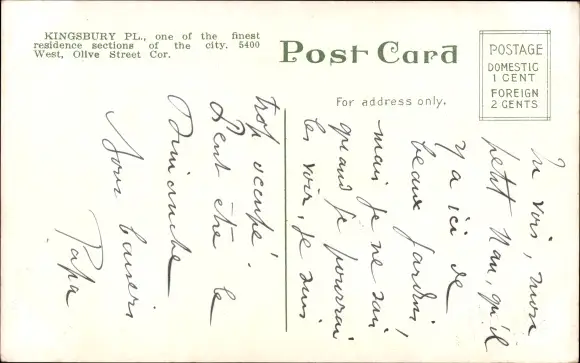 KINGSBURY PL., one of the finest
residence sections of the city. 5400
West, Olive Street Cor.
Post Card
POSTAGE
DOMESTIC
1 CENT
FOREIGN
2 CENTS
For address only.
Tu vois, mon
petit Nan, qu'il
y a ici de
beaux jardins,
mais je ne sais
quand je pourrai
les voir, je suis
trop occupé.
Peut être le
Dimanche
Bons baisers
Papa